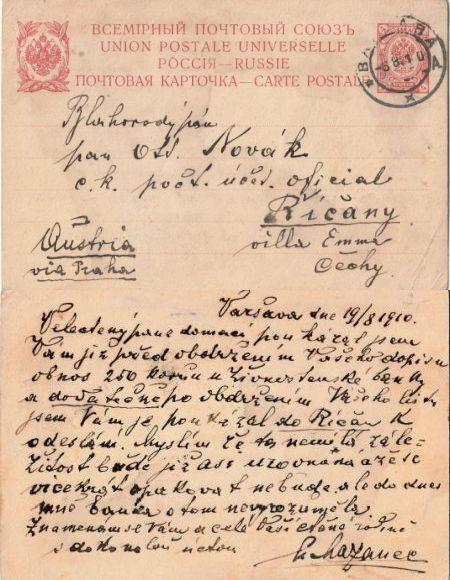 ВСЕМІРНЫЙ ПОЧТОВЫЙ СОЮЗЪ
UNION POSTALE UNIVERSELLE
РОССІЯ—RUSSIE
ПОЧТОВАЯ КАРТОЧКА—CARTE POSTALE
Blahorodý pán
pan Ott. Novák
c. k. pošt. účet. official
Říčany
villa Emma
Čechy
Austria
via Praha
Varšava dne 19/8 1910.
Velectený pane domací poukázal jsem
Vám již před obdržením Vašeho dopisu
obnos 250 korun u Živnostenské banky
a dodatečně po obdržením Vašeho listu
jsem Vám je poukázal do Říčan k
odeslání. Myslím že ta nemilá zále=
žitost bude již asi urovnaná a že se
vícekrát opakovat nebude ale do dnes
mně banka o tom nevyrozuměla
Znamenám se Vám a celé Vaší ctěné rodině
s dokonalou úctou
Mazanec